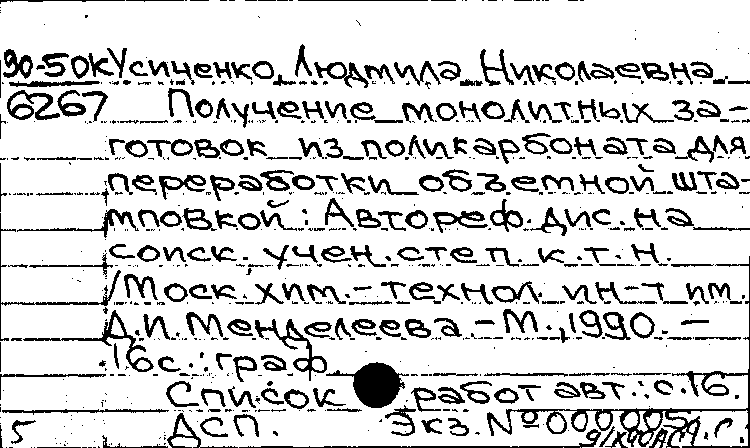 90-50К Усиченко, Людмила Николаевна.
6267 Получение монолитных за-
готовок из поликарбоната для
переработки объемной шта-
мповкой: Автореф. дис. на
соиск. учен. степ. к. т. н.
/Моск. хим.-технол. ин-т им.
Д.И. Менделеева.-М., 1990. -
16с.: граф.
Список работ авт.: с.16.
5 ДСП. Экз. № 000005